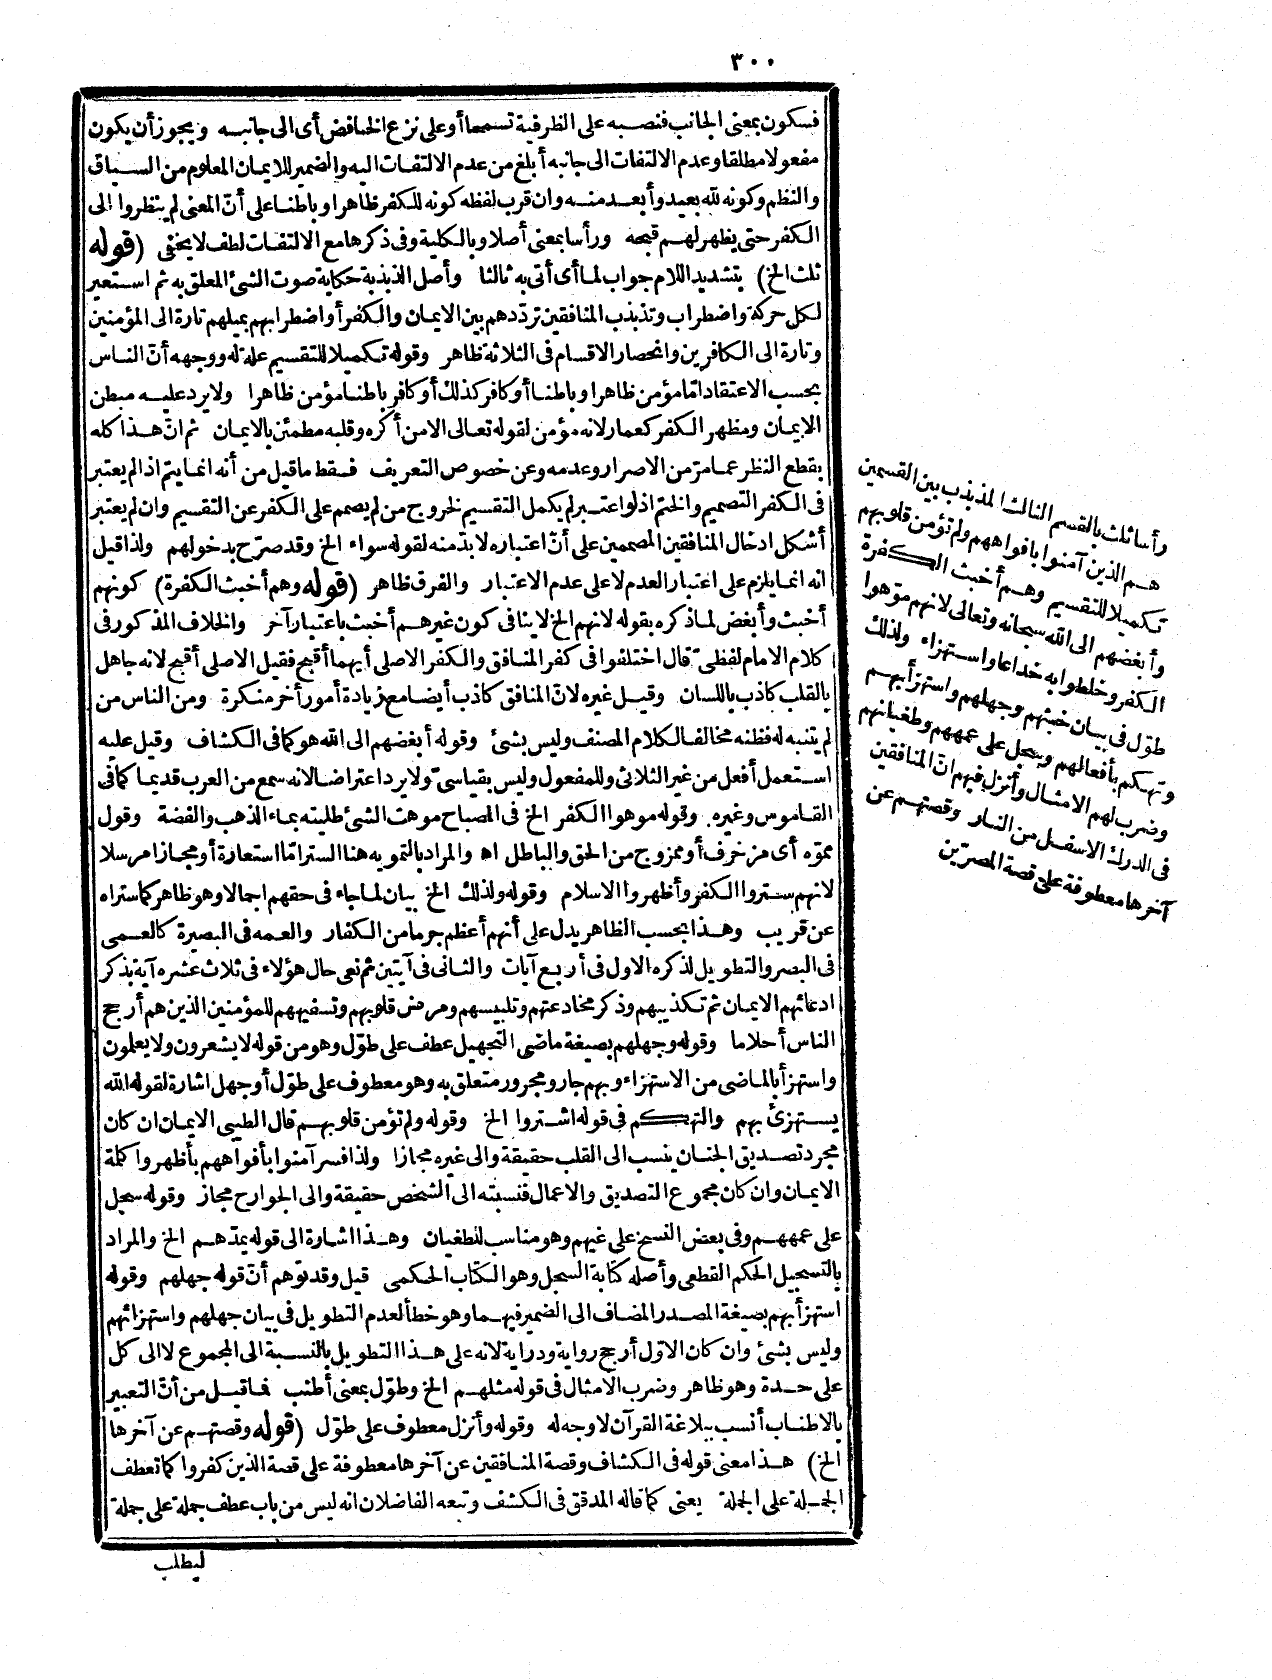 ٣٠٠
فسكون بمعنى الجانب فنصبه على الظرفية تسمحا أو على نزع الخافض أى الى جانبه ويجوز أن يكون
مفعولا مطلقا وعدم الالتفات الى جانبه أبلغ من عدم الالتفات اليه والضمير للايمان المعلوم من السياق
والنظم وكونه لله بعيد وأبعد منه وان قرب لفظه كونه للكفر ظاهرا وباطنا على أنّ المعنى لم ينظروا الى
الكفر حتى يظهر لهم قبحه ورأسا بمعنى أصلا وبالكلية وفى ذكرها مع الالتفات لطف لا يخفى (قوله
ثلث الخ) بتشديد اللام جواب لما أى أتى به ثالثا وأصل الذبذبة حكاية صوت الشئ المعلق به ثم استعير
لكل حركة واضطراب وتذبذب المنافقين تردّدهم بين الايمان والكفر أو اضطرابهم بميلهم تارة الى المؤمنين
وتارة الى الكافرين وانحصار الاقسام فى الثلاثة ظاهر وقوله تكميلا للتقسيم علة له ووجهه أنّ الناس
بحسب الاعتقاد امّا مؤمن ظاهرا وباطنا أو كافر كذلك أو كافر باطنا مؤمن ظاهرا ولا يرد عليه مبطن
الايمان ومظهر الكفر كعمار لانه مؤمن لقوله تعالى الا من أكره وقلبه مطمئن بالايمان ثم انّ هذا كله
بقطع النظر عما مرّ من الاصرار وعدمه وعن خصوص التعريف فسقط ما قيل من أنه انما يتم اذا لم يعتبر
فى الكفر التصميم والختم اذ لو اعتبر لم يكمل التقسيم لخروج من لم يصمم على الكفر عن التقسيم وان لم يعتبر
أشكل ادخال المنافقين المصممين على أنّ اعتباره لا بدّ منه لقوله سواء الخ وقد صرّح بدخولهم ولذا قيل
انه انما يلزم على اعتبار العدم لا على عدم الاعتبار والفرق ظاهر (قوله وهم أخبث الكفرة) كونهم
أخبث وأبغض لما ذكره بقوله لانهم الخ لا ينافى كون غيرهم أخبث باعتبار آخر والخلاف المذكور فى
كلام الامام لفظىّ قال اختلفوا فى كفر المنافق والكفر الاصلى أيهما أقبح فقيل الاصلى أقبح لانه جاهل
بالقلب كاذب باللسان وقيل غيره لانّ المنافق كاذب أيضا مع زيادة أمور أخر منكرة ومن الناس من
لم يتنبه له فظنه مخالفا لكلام المصنف وليس بشئ وقوله أبغضهم الى الله هو كما فى الكشاف وقيل عليه
استعمل أفعل من غير الثلاثى وللمفعول وليس بقياسىّ ولا يرد اعتراضا لانه سمع من العرب قديما كما فى
القاموس وغيره. وقوله موهوا الكفر الخ فى المصباح موهت الشئ طليته بماء الذهب والفضة وقول
مموّه أى مزخرف أو ممزوج من الحق والباطل اه والمراد بالتمويه هنا الستر امّا استعارة أو مجازا مرسلا
لانهم ستروا الكفر وأظهروا الاسلام وقوله ولذلك الخ بيان لما جاء فى حقهم اجمالا وهو ظاهر كما ستراه
عن قريب وهذا بحسب الظاهر يدل على أنهم أعظم جرما من الكفار والعمه فى البصيرة كالعمى
فى البصر والتطويل لذكره الاول فى أربع آيات والثانى فى آيتين ثم نعى حال هؤلاء فى ثلاث عشره آية بذكر
ادعائهم الايمان ثم تكذيبهم وذكر مخادعتهم وتلبيسهم ومرض قلوبهم وتسفيههم للمؤمنين الذين هم أرجح
الناس أحلاما وقوله وجهلهم بصيغة ماضى التجهيل عطف على طوّل وهو من قوله لا يشعرون ولا يعلمون
واستهزأ بالماضى من الاستهزاء وبهم جار ومجرور متعلق به وهو معطوف على طوّل أو جهل اشارة لقوله الله
يستهزئ بهم والتهكم فى قوله اشتروا الخ وقوله ولم تؤمن قلوبهم قال الطيبى الايمان ان كان
مجرد تصديق الجنان ينسب الى القلب حقيقة والى غيره مجازا ولذا فسر آمنوا بأفواههم بأظهروا كلمة
الايمان وان كان مجموع التصديق والاعمال فنسبته الى الشخص حقيقة والى الجوارح مجاز وقوله سجل
على عمههم وفى بعض النسخ على غيهم وهو مناسب لطغيان وهذا اشارة الى قوله يمدّهم الخ والمراد
بالتسجيل الحكم القطعى وأصله كتابة السجل وهو الكتاب الحكمى قيل وقد توّهم أنّ قوله جهلهم وقوله
استهزأ بهم بصيغة المصدر المضاف الى الضمير فيهما وهو خطأ لعدم التطويل فى بيان جهلهم واستهزائهم
وليس بشئ وان كان الاوّل أرجح رواية ودراية لانه على هذا التطويل بالنسبة الى المجموع لا الى كل
على حدة وهو ظاهر وضرب الامثال فى قوله مثلهم الخ وطوّل بمعنى أطنب فما قيل من أنّ التعبير
بالاطناب أنسب ببلاغة القرآن لا وجه له وقوله وأنزل معطوف على طوّل (قوله وقصتهم عن آخرها
الخ) هذا معنى قوله فى الكشاف وقصة المنافقين عن آخرها معطوفة على قصة الذين كفروا كما تعطف
الجملة على الجملة يعنى كما قاله المدقق فى الكشف وتبعه الفاضلان انه ليس من باب عطف جملة على جملة
ليطلب
رأسا ثلث بالقسم الثالث المذبذب بين القسمين
هم الذين آمنوا بافواههم ولم تؤمن قلوبهم
تكميلا للتقسيم وهم أخبث الكفرة
وأبغضهم الى الله سبحانه وتعالى لانهم موّهوا
الكفر وخلطوا به خداعا واستهزاء ولذلك
طوّل فى بيان خبثهم وجهلهم واستهزأ بهم
وتهكم بأفعالهم وسجل على عمههم وطغيانهم
وضرب لهم الامثال وأنزل فيهم انّ المنافقين
فى الدرك الاسفل من النار وقصتهم عن
آخرها معطوفة على قصة المصرّين